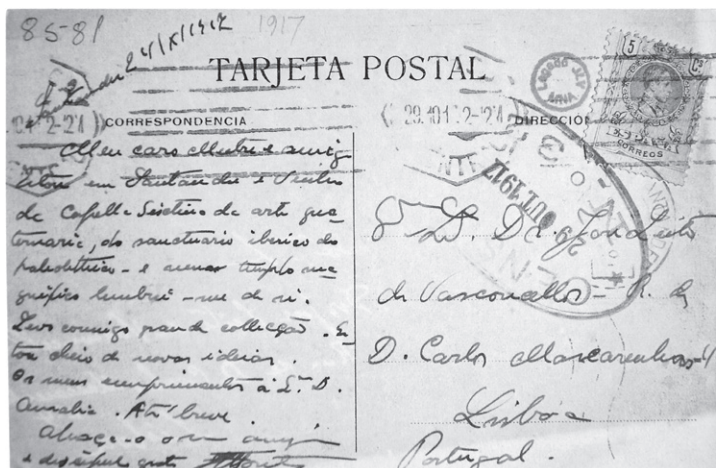 85-81 1917
Santander 24/X/1917
TARJETA POSTAL
CORRESPONDENCIA
DIRECCION
5 Cs
CORREOS
29.10 1 2-21
29 OUT 1917
Meu caro Mestre e amigo
Estou em Santander e dentro
da Capella Sixtina da arte qua
ternaria, do sanctuario iberico do
paleolithico - e nesse templo ma
gnifico lembrei-me de si.
Levo commigo grande collecção. Es
tou cheio de novas ideias.
Os meus cumprimentos á S.ª D.
Amalia. Até breve
Abraça-o o seu amigo
e discipulo grato
D. José Leite
de Vasconcellos - R. de
D. Carlos Mascarenhas-
Lisboa
Portugal.